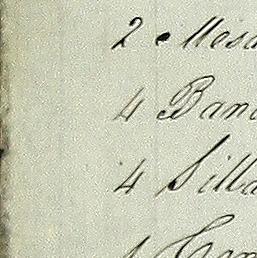 2 Mesa
4 Banc
4 Silla